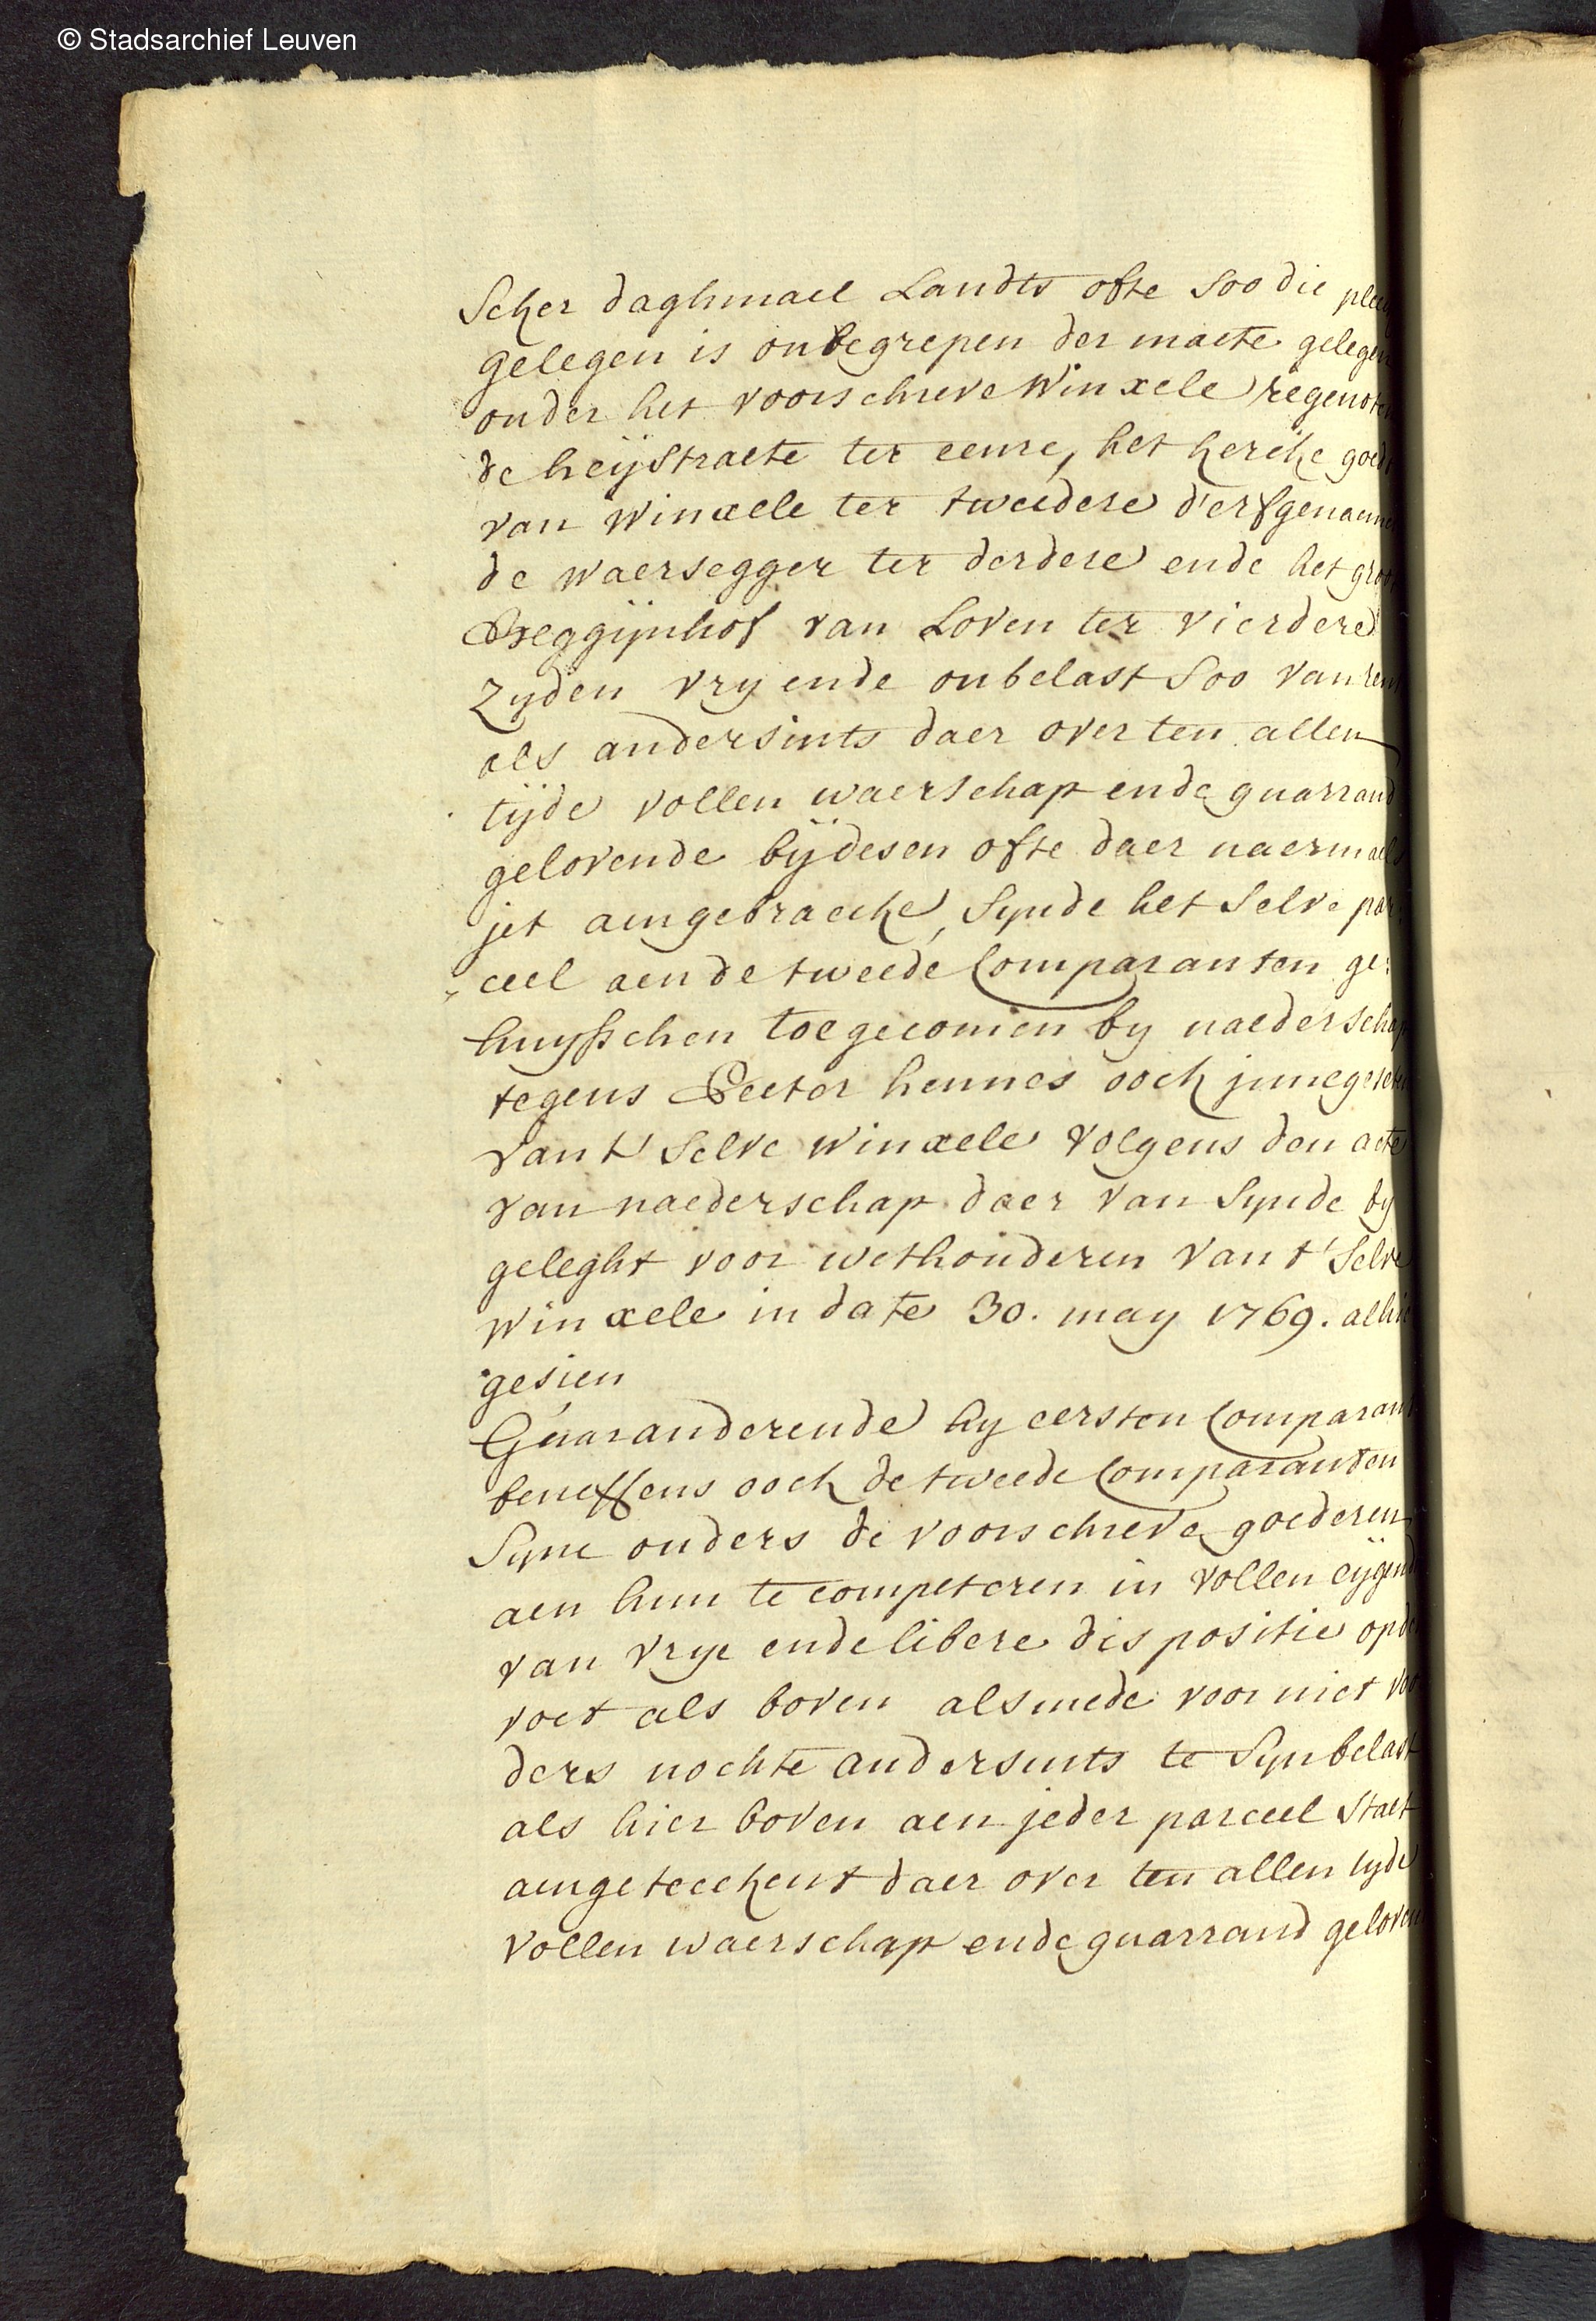 © Stadsarchief Leuven
Seker daghmael Landts ofte soo die
gelegen is onbegrepen der maete gelegen
onder het voorschreve Winxele regenoten
de heijstraete ter eenre, het kercke goedt
van Winxele ter tweedere d'erfgenaemen
de waersegger ter derdere ende het groot
Beggijnhof van Loven ter vierdere
Zyden vry ende onbelast soo van
als andersints daer over ten allen
tijde vollen waerschap ende guarrand
gelovende bijdesen ofte daer naermaels
jet aengebraecke, synde het selve par:
ceel aen de tweede Comparanten ge:
huysschen toegecomen by naederschap
tegens Peeter hennes oock innegeseten
van t' selve Winxele volgens den acte
van naederschap daer van synde by
geleght voor wethouderen van t' selve
Winxele in date 30. may 1769. alhier
gesien
Guaranderende hy eersten Comparant
beneffens oock de tweede Comparanten
Syne ouders de voorschreve goederen
aen hun te competeren in vollen eijgendom
van vrye ende libere dispositie op den
voet als boven alsmede voor niet voor
ders nochte andersints te syn belast
als hier boven aen jeder parceel staet
aengeteeckent daer over ten allen tyde
vollen waerschap ende guarrand geloven